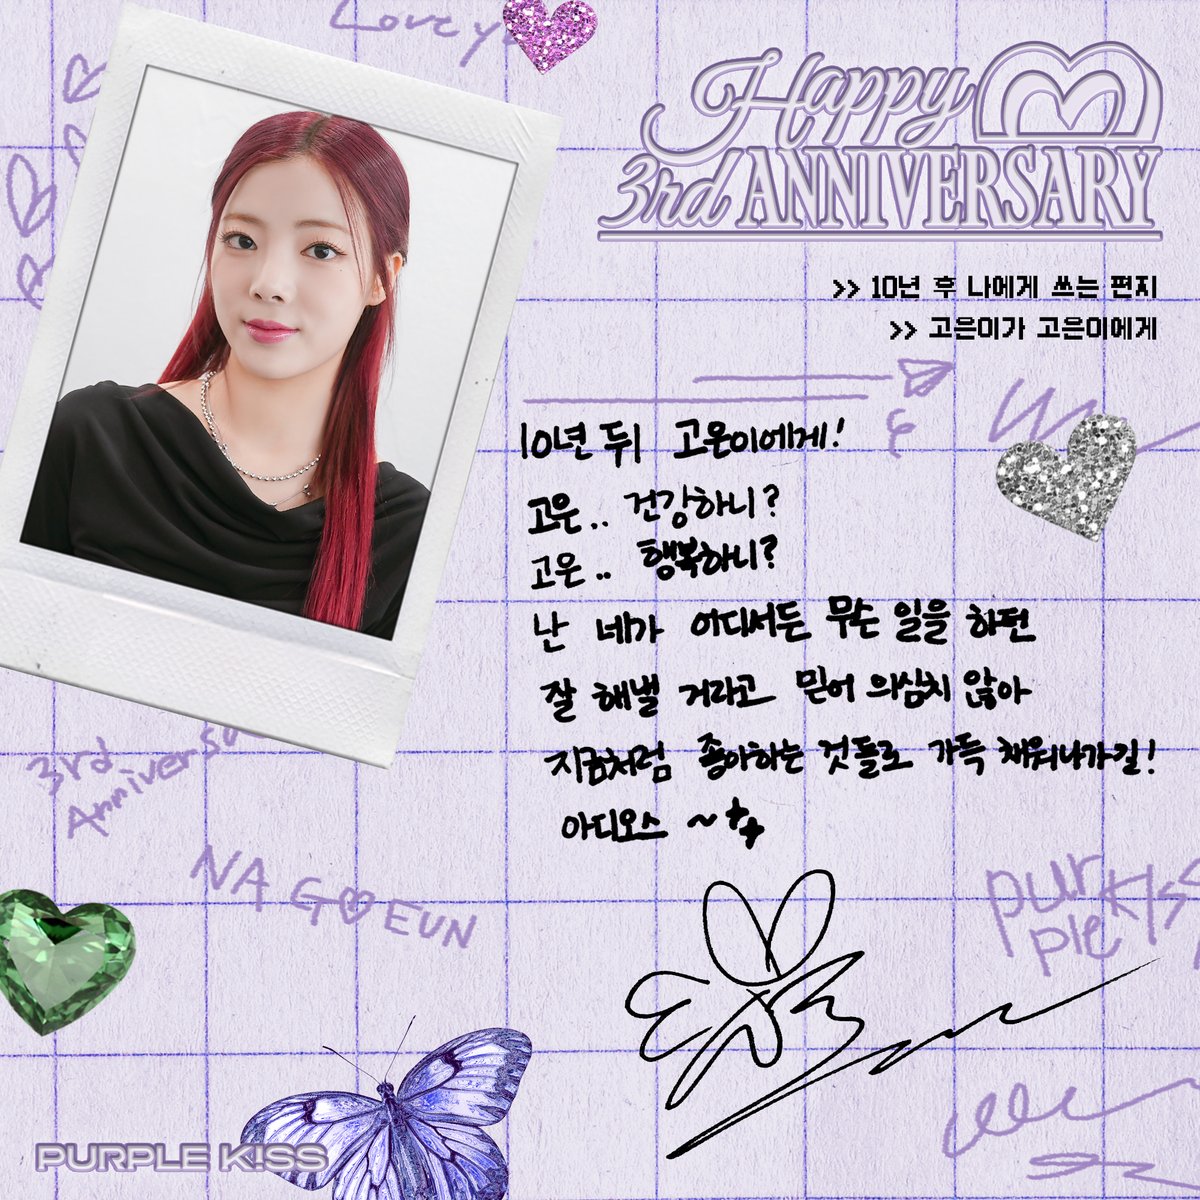 Love yo
Happy
3rd ANNIVERSARY
>> 10년 후 나에게 쓰는 편지
>> 고은이가 고은이에게
10년 뒤 고은이에게!
고은.. 건강하니?
고은.. 행복하니?
난 네가 어디서든 무슨 일을 하던
잘 해낼 거라고 믿어 의심치 않아
지금처럼 좋아하는 것들로 가득 채워나가길!
아디오스 ~
3rd
Anniversa
NA G♡EUN
pur
ple
Kiss
PURPLE K!SS